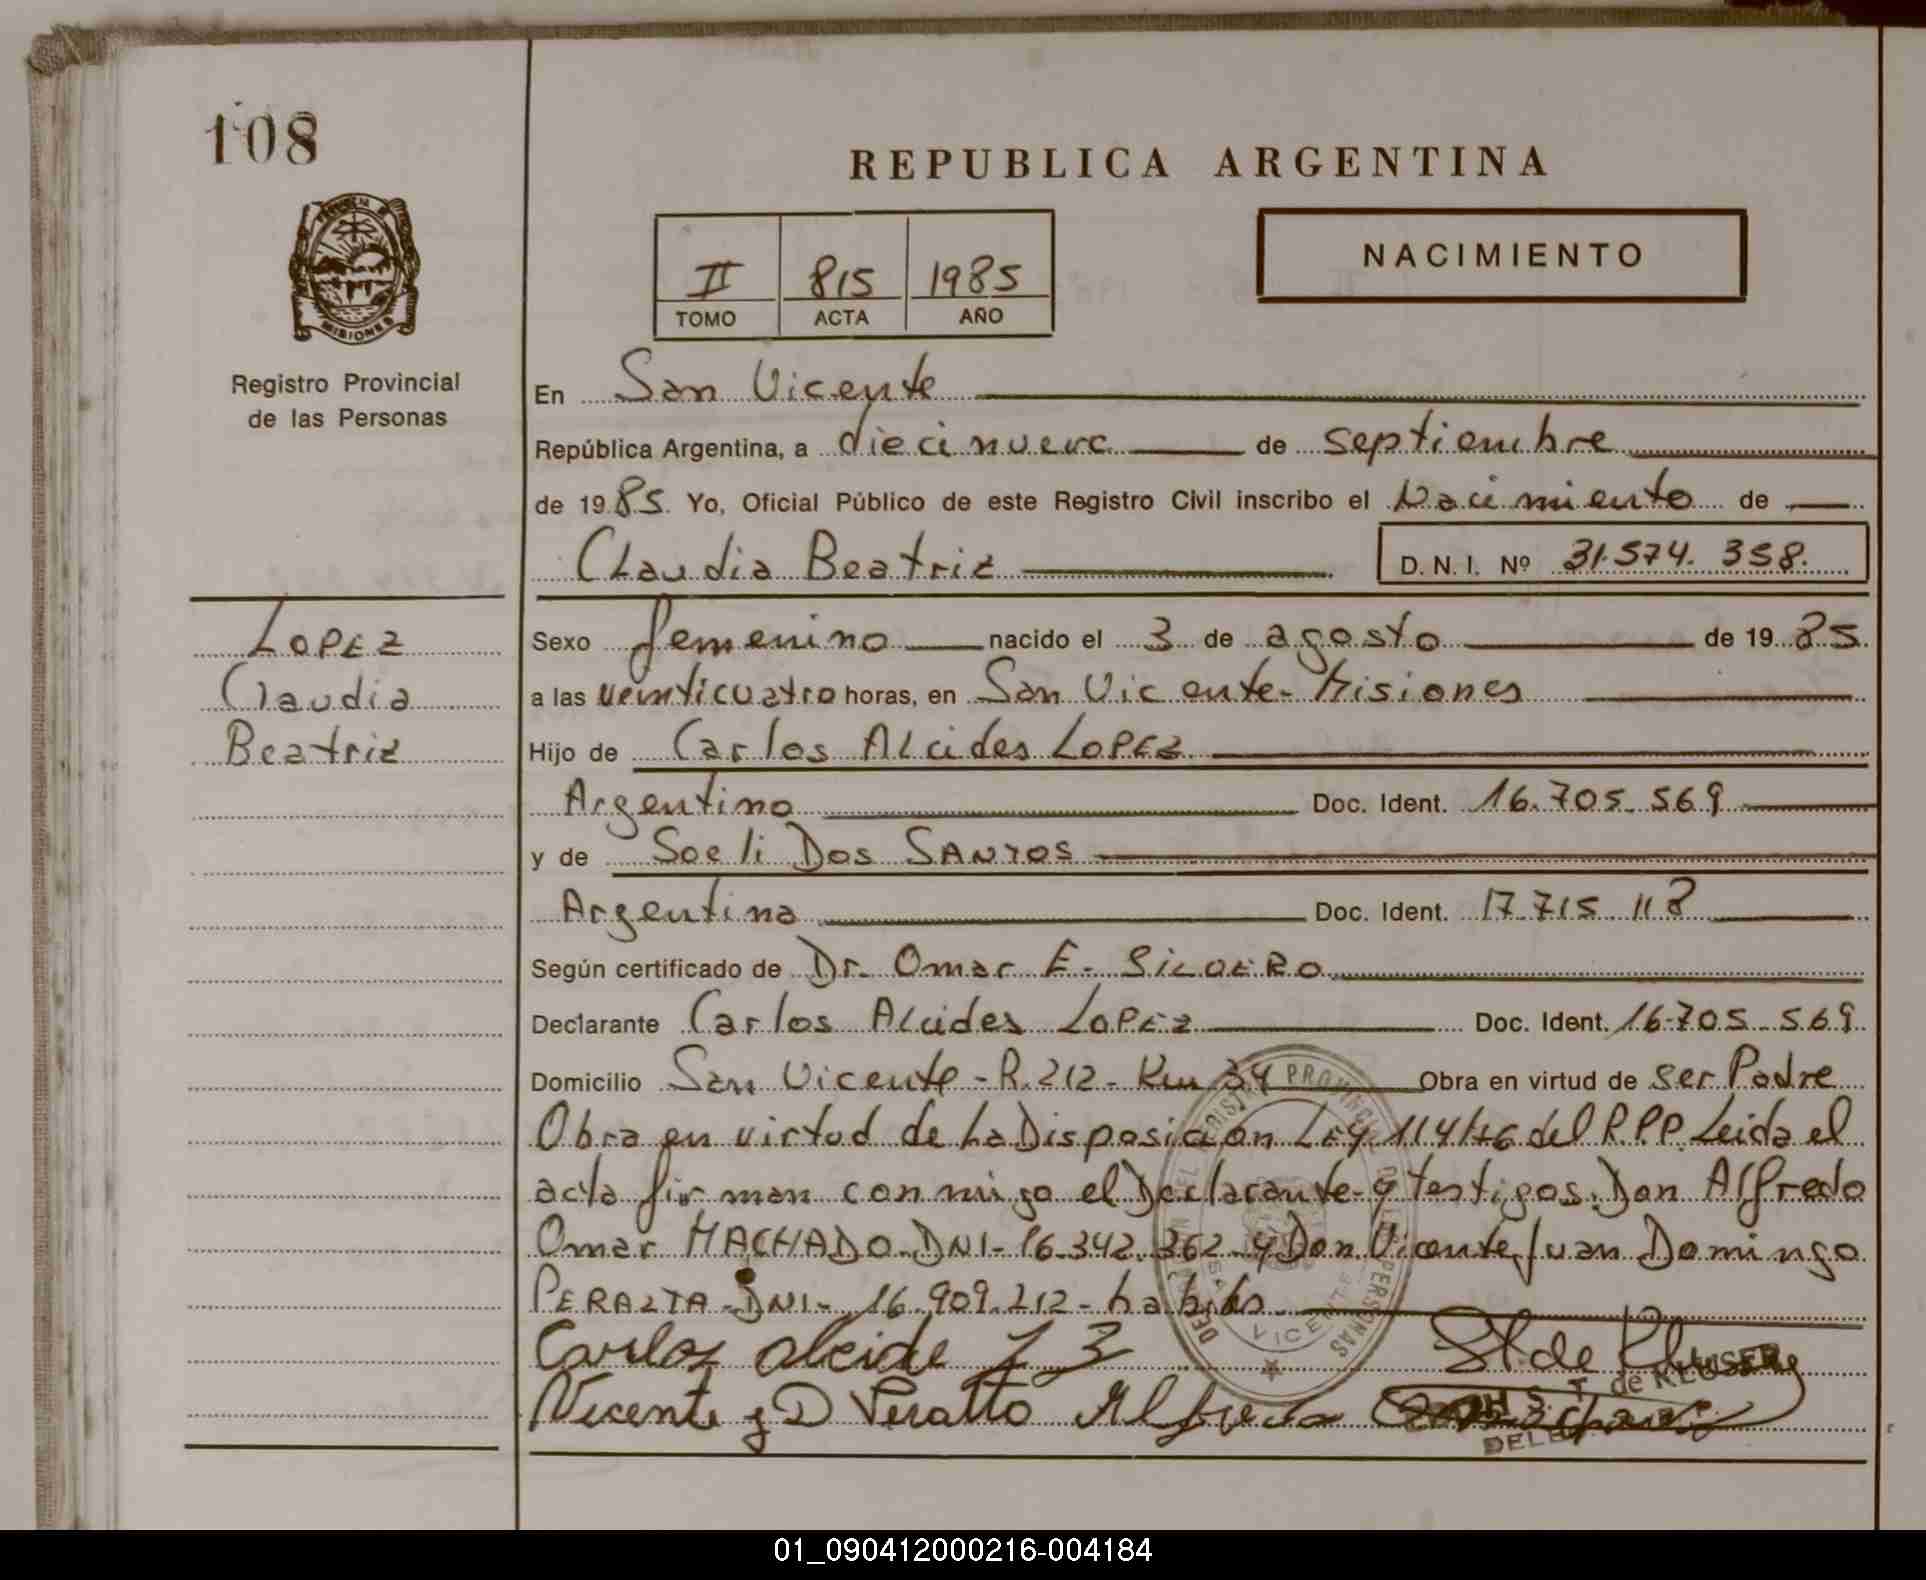 108
REPUBLICA ARGENTINA
PROVINCIA DE MISIONES
II 815 1985
TOMO ACTA AÑO
NACIMIENTO
Registro Provincial
de las Personas
En San Vicente
República Argentina, a diecinueve de septiembre
de 1985. Yo, Oficial Público de este Registro Civil inscribo el Nacimiento de
Claudia Beatriz D.N.I. Nº 31.574.358.
LOPEZ
Claudia
Beatriz
Sexo femenino nacido el 3 de agosto de 1985
a las veinticuatro horas, en San Vicente - Misiones
Hijo de Carlos Alcides LOPEZ
Argentino Doc. Ident. 16.705.569
y de Soeli Dos SANTOS
Argentina Doc. Ident. 17.715.118
Según certificado de Dr. Omar E.
Declarante Carlos Alcides LOPEZ Doc. Ident. 16.705.569
Domicilio San Vicente - R. 212 - Km 34 Obra en virtud de ser Padre
Obra en virtud de La Disposición LEY del R.P.P. Leida el
acta firman conmigo el Declarante y testigos. Don Alfredo
Omar MACHADO DNI - 16.342.362 y Don Vicente Juan Domingo
PERALTA - DNI - 16.909.212 - habiles
Carlos alcide
Vicente J D Peralto Alfredo
S. T. de KLUSER
VICENTE
01_090412000216-004184